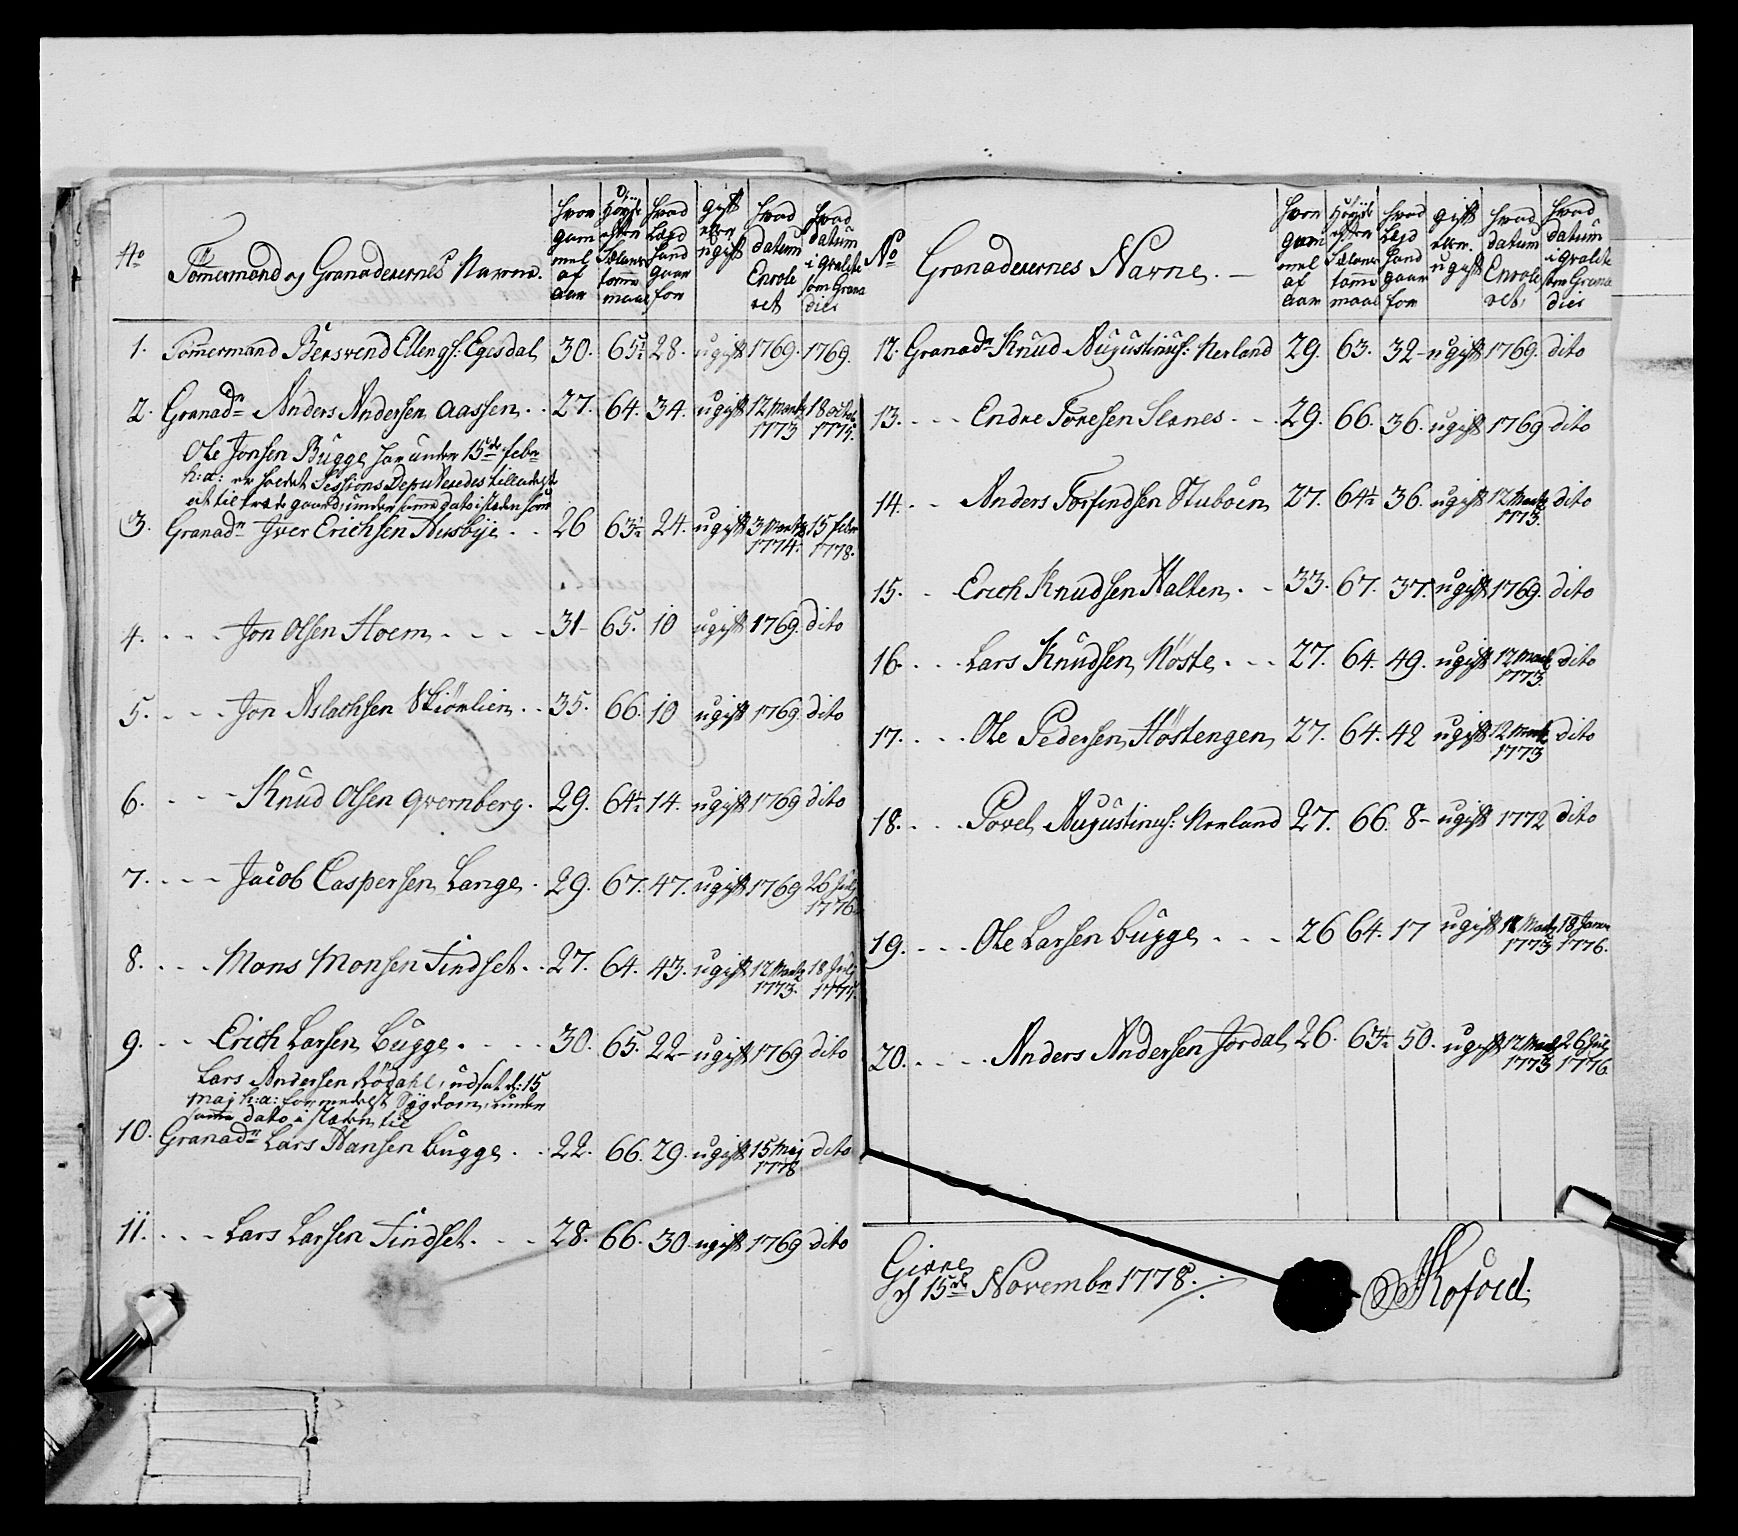 No
Tömermand og Granaderernes Navne.
hvor gam mel af aar
Höyde efter Sælanz tomme maal
hvad Lægd hand gaar for
gift eller ugift
hvad datum Enrole ret
hvad datum i qvalite som Grana dier
1. Tömermand Bersvend Ellengs: Egesdal 30. 65½ 28. ugift 1769. 1769.
2. Granadr Anders Andersen Aassen . . 27. 64. 34. ugift 12 Martz 1773 18 octob 1775.
Ole Jonsen Bugge har under 15de febr
h: a: er herdet Sessions Deputeredes tilladelse
til gaard, under samme dato i steden som
3. Granadr Iver Erichsen Husbye . . 26 63½ 24. ugift 3 Martz 1774. 15 febr 1778.
4. . . . Jon Olsen Hoem . . . . 31 65. 10 ugift 1769. dito
5. . . . Jon Aslachsen Skiörlien . . 35. 66. 10 ugift 1769 dito
6. . . . Knud Olsen Qvernberg. 29. 64½ 14. ugift 1769 dito
7. . . . Jacob Caspersen Lange . 29. 67. 47. ugift 1769 26 Julj 1776
8. . . . Mons Monsen Tindset . . 27. 64. 43. ugift 12 Martz 1773. 18 Julj 1775.
9. . . Erich Larsen Bugge . . . . 30. 65. 22 ugift 1769 dito
Lars Andersen Rödahl, udsat d: 15
Maj h: a: formedelst Sygdom, under
samme dato i steden til
10. Granadr Lars Hansen Bugge . . 22. 66. 29. ugift 15 Maj 1778 dito
11. . . . Lars Larsen Tindset . . . 28. 66. 30 ugift 1769 dito
No
Granaderernes Navne. —
hvor gam mel af aar
Höyde efter Sælanz tomme maal
hvad Lægd hand gaar for
gift eller. ugift
hvad datum Enrole ret,
hvad datum i qvalite som Grana dier
12. Granadr Knud Augustinus: Nerland 29. 63. 32 ugift 1769. dito
13. . . . Endre Toresen Slenes . . . 29. 66. 36. ugift 1769 dito
14. . . Anders Torfindsen Stuboen 27. 64½ 36. ugift 12 Martz 1773. dito
15. . Erich Knudsen Halten . . 33. 67. 37. ugift 1769. dito
16. . . . Lars Knudsen Höste . . . 27. 64. 49. ugift 12 Martz 1773. dito
17. . . . Ole Pedersen Höstengen, 27. 64. 42 ugift 12 Martz 1773 dito
18. . . . Povel Augustinus: Nerland 27. 66. 8 ugift 1772 dito
19. . . . Ole Larsen Bugge . . . 26 64. 17 ugift 12 Martz 1773 18 Janv 1776.
20. . . . . Anders Andersen Jordal 26. 63½ 50. ugift 12 Martz 1773 26 Julj 1776.
d 15de Novembr 1778.
Kofoed.